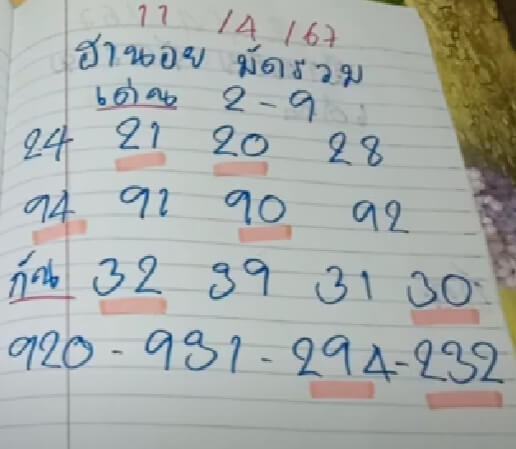 11 /4 /67
ฮานอย มัดรวม
เด่น 2-9
24 21 20 28
94 91 90 92
กัน 32 39 31 30
920-931-294-232